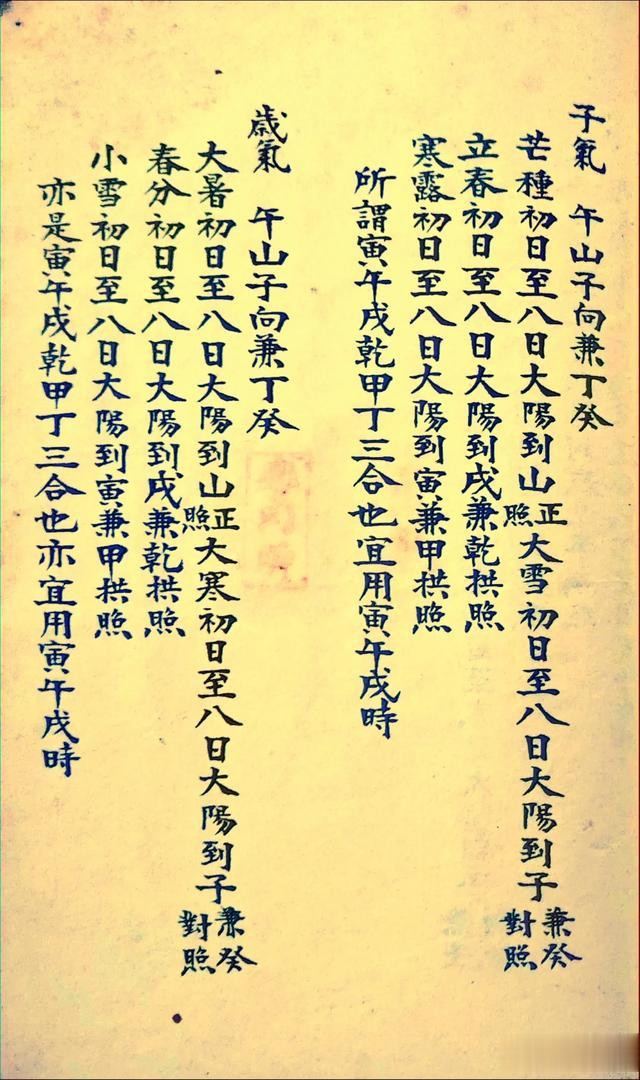 子氣　午山子向兼丁癸
芒種初日至八日大陽到山正照大雪初日至八日大陽到子兼癸對照
立春初日至八日大陽到戌兼乾拱照
寒露初日至八日大陽到寅兼甲拱照
所謂寅午戌乾甲丁三合也宜用寅午戌時
歲氣　午山子向兼丁癸
大暑初日至八日大陽到山正照大寒初日至八日大陽到子兼癸對照
春分初日至八日大陽到戌兼乾拱照
小雪初日至八日大陽到寅兼甲拱照
亦是寅午戌乾甲丁三合也亦宜用寅午戌時